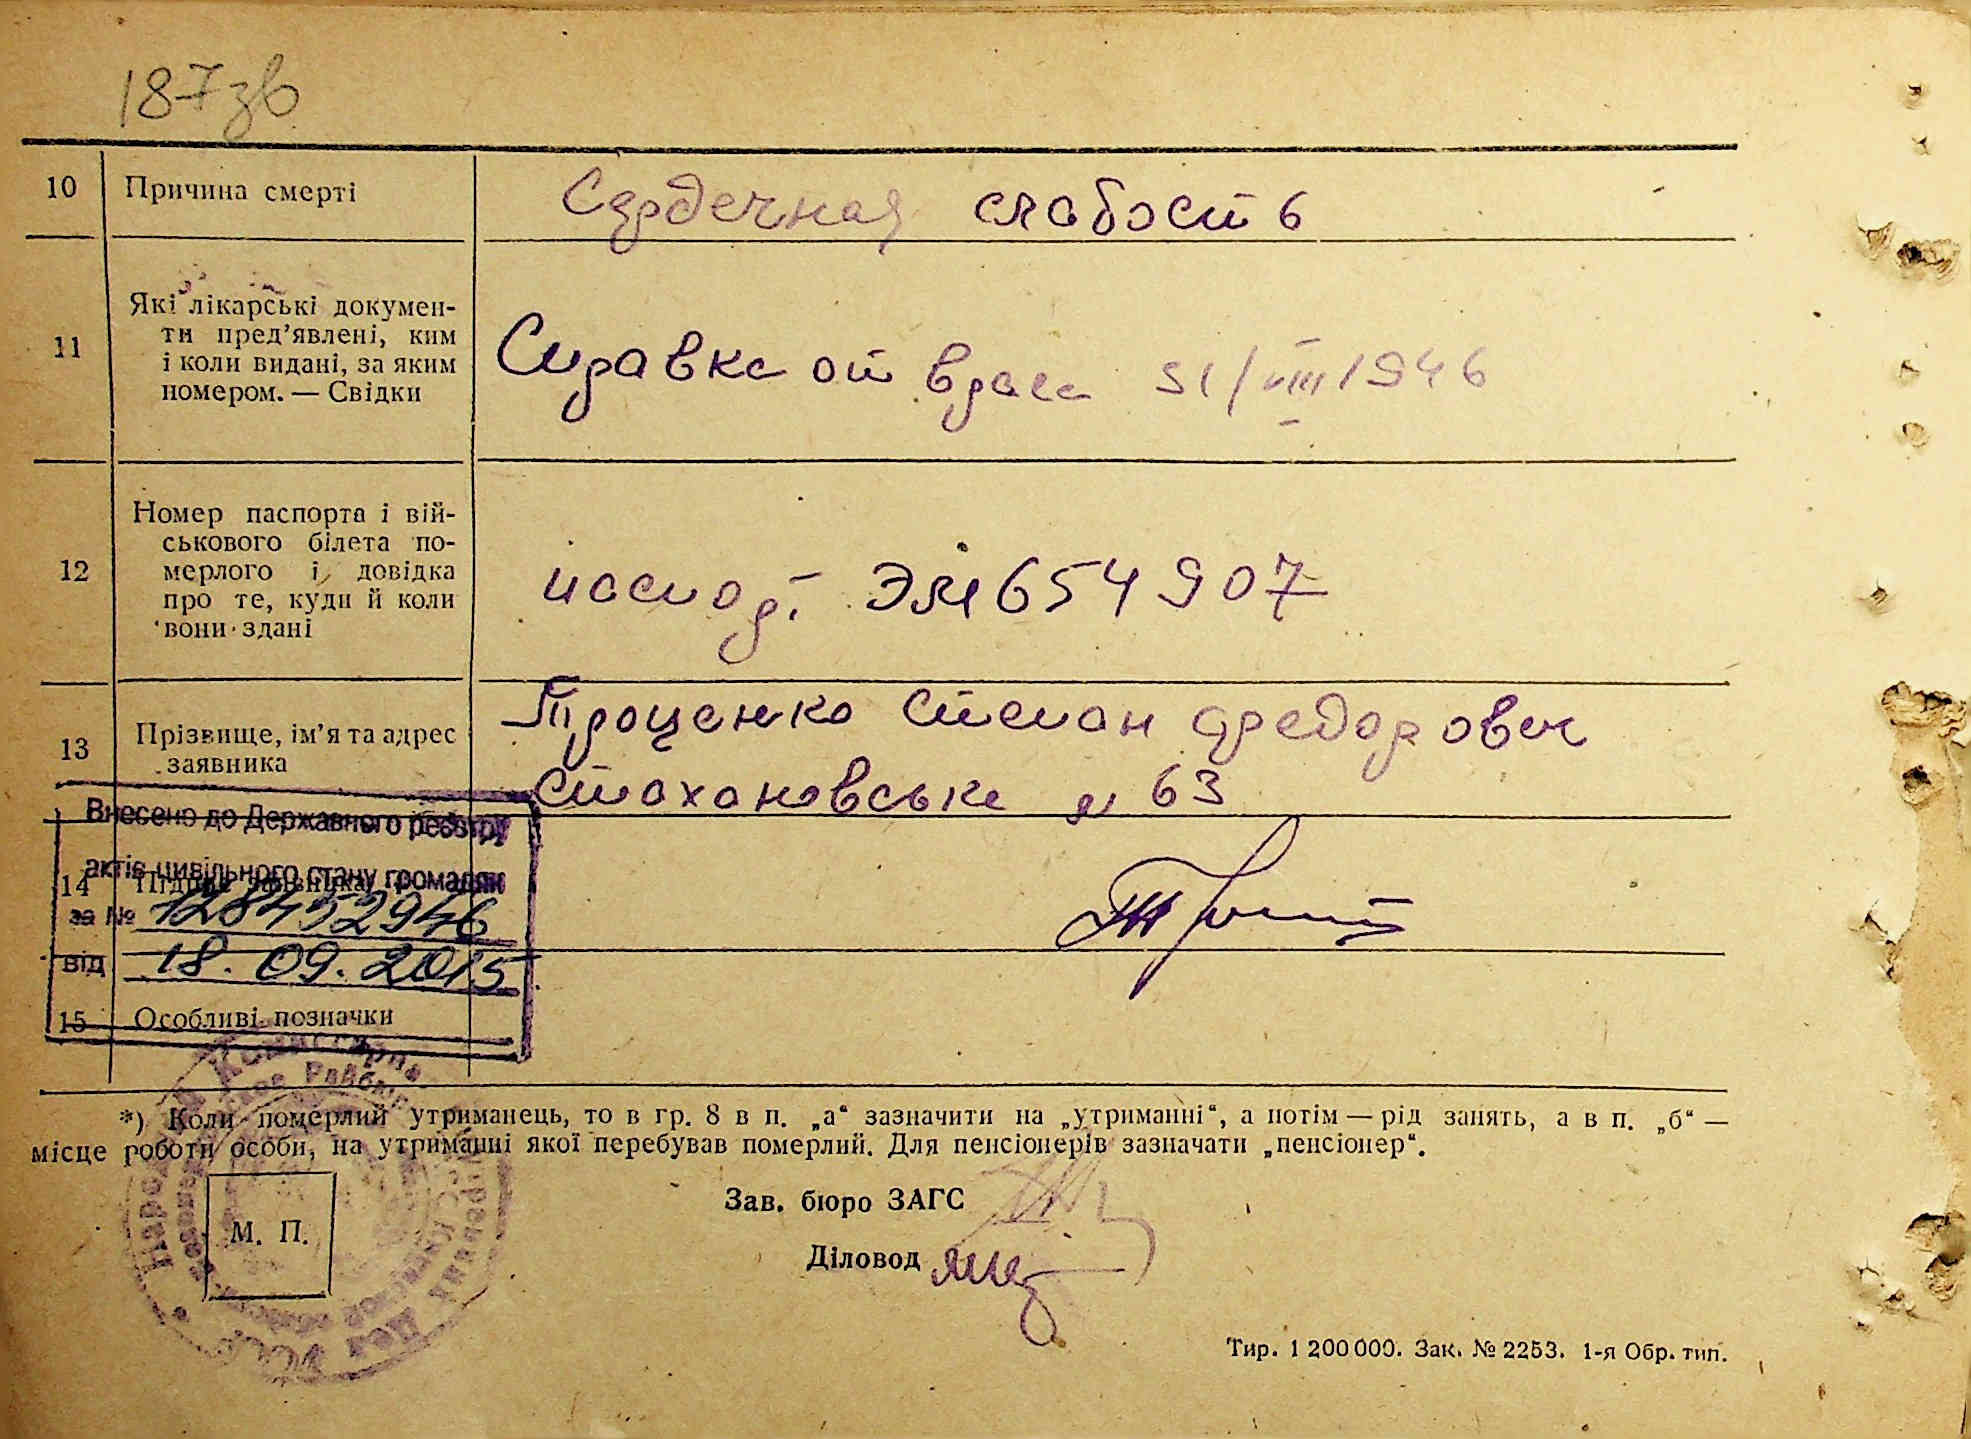 187зв
10 Причина смерті Сердечная слабость
11 Які лікарські докумен-
ти пред’явлені, ким
і коли видані, за яким
номером. — Свідки
Справка от врача 31/VIII 1946
12 Номер паспорта і вій-
ськового білета по-
мерлого і довідка
про те, куди й коли
вони здані
паспорт ЭМ 654907
13 Прізвище, ім’я та адрес
заявника
Проценко Степан Федорович
Стахановська 63
Внесено до Державного реєстру
актів цивільного стану громадян
14 Підпис заявника
за № 128452946
від 18.09.2015
15 Особливі позначки
*) Коли померлий утриманець, то в гр. 8 в п. „а“ зазначити на „утриманні“, а потім — рід занять, а в п. „б“ —
місце роботи особи, на утриманні якої перебував померлий. Для пенсіонерів зазначати „пенсіонер“.
Зав. бюро ЗАГС
М. П.
Діловод
Тир. 1 200 000. Зак. № 2253. 1-я Обр. тип.